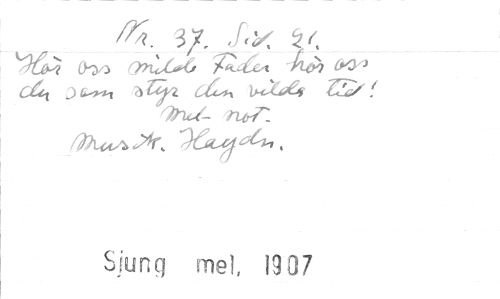 Nr. 37. Sid. 21.
Hör oss milde Fader hör oss
du som styr den vilda tid!
Mel- not-
Musik. Haydn.
Sjung mel, 1907